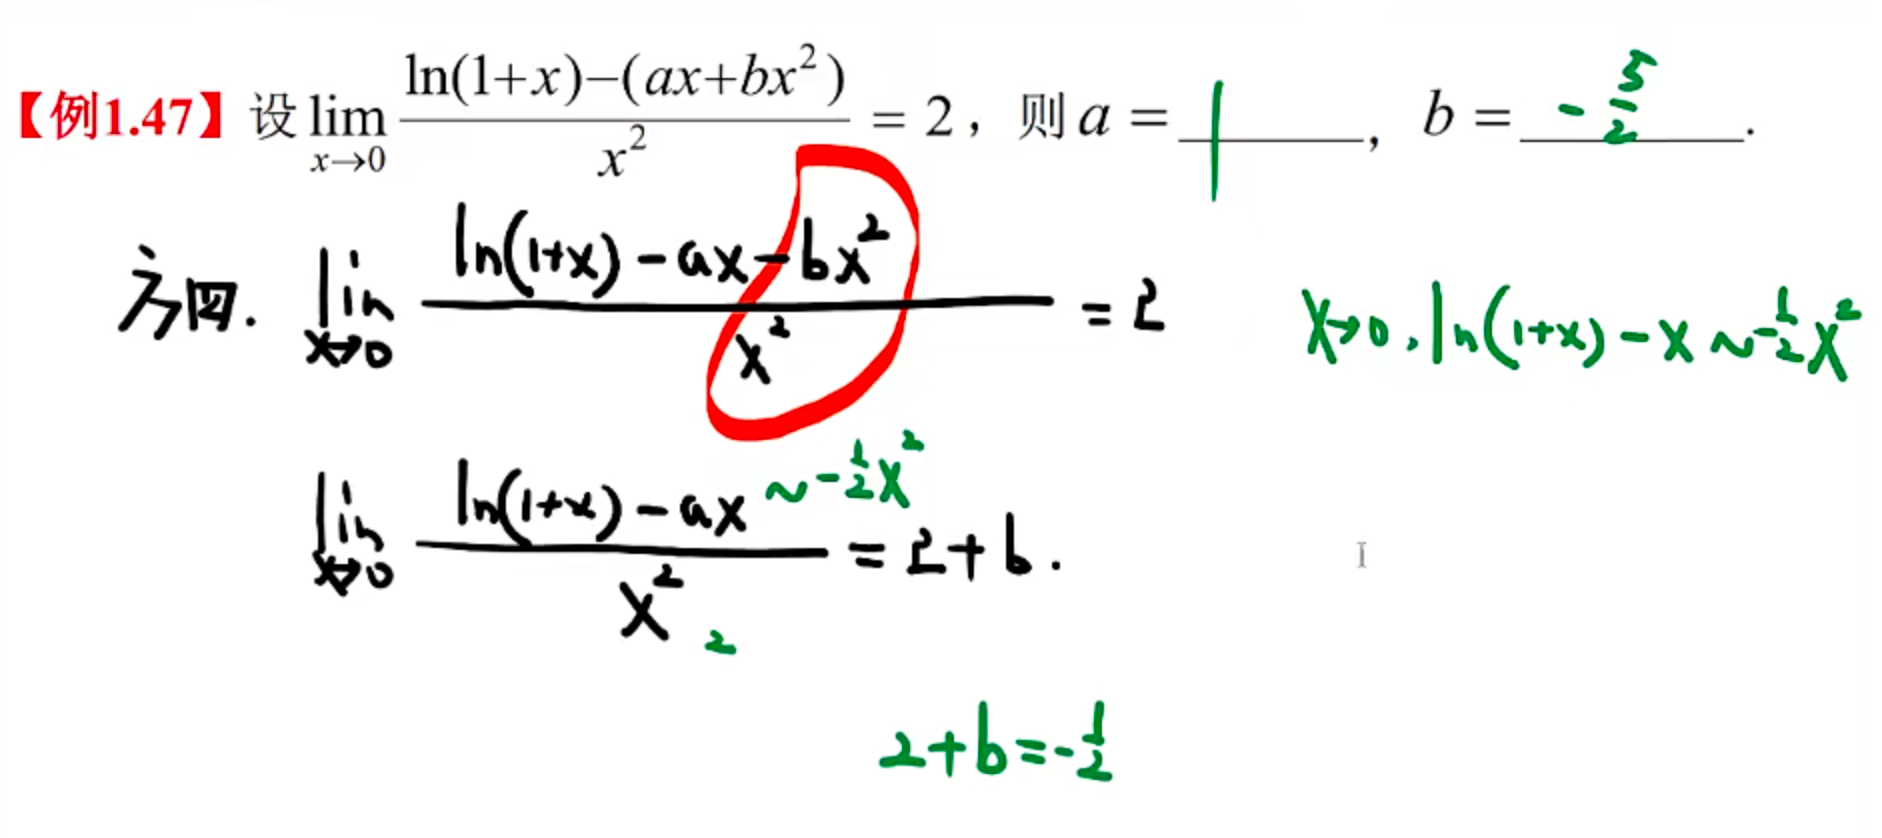 【例1.47】设 lim x→0 (ln(1+x)−(ax+bx²))/x² = 2，则 a = 1，b = -5/2.
方四. lim x→0 (ln(1+x)-ax-bx²)/x² = 2
x→0, ln(1+x)-x ~ -1/2 x²
lim x→0 (ln(1+x)-ax ~ -1/2 x²)/x² = 2+b.
2
2+b=-1/2